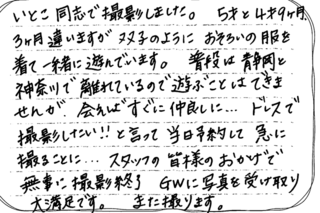 いとこ同志で撮影しました。 5才と4才9ヶ月
3ヶ月違いますが双子のようにおそろいの服を
着て一緒に遊んでいます。 普段は静岡と
神奈川で離れているので遊ぶことはできま
せんが、会えばすぐに仲良しに… ドレスで
撮影したい!!と言って当日予約して急に
撮ることに… スタッフの皆様のおかげで
無事に撮影終了 GWに写真を受け取り
大満足です。 また撮ります。